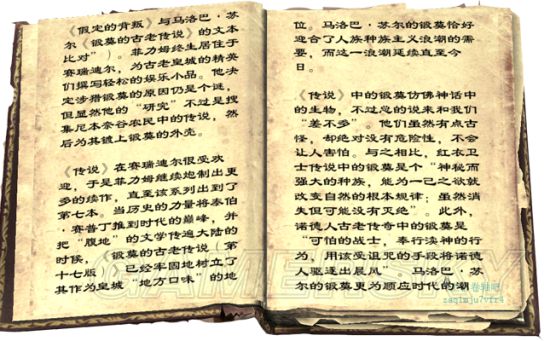 《假定的背叛》与马洛巴·苏
尔《锻莫的古老传说》的文本
比对”）。菲力姆终生居住于
赛瑞迪尔，为古老皇城的精英
们撰写轻松的娱乐小品。他决
定涉猎锻莫的原因仍是个谜，
但显然他的“研究”不过是搜
集尼本奈谷农民中的传说，然
后为其镀上锻莫的外壳。
《传说》在赛瑞迪尔很受欢
迎，于是菲力姆继续炮制出更
多的续作，直至该系列出到了
第七本。当历史的力量将泰伯
·赛普丁推到时代的巅峰，并
把“腹地”的文学传遍大陆的
时候，《锻莫的古老传说，第
十七版》已经牢固地树立了
其作为皇城“地方口味”的地
位。马洛巴·苏尔的锻莫恰好
迎合了人族种族主义浪潮的需
要，而这一浪潮延续直至今
日。
《传说》中的锻莫仿佛神话中
的生物，不过总的说来和我们
“差不多”。他们虽然有点古
怪，却绝对没有危险性，不会
让人害怕。与之相比，红衣卫
士传说中的锻莫是个“神秘而
强大的种族，能为一己之欲就
改变自然的根本规律；虽然消
失但可能没有灭绝”。此外，
诺德人古老传奇中的锻莫是
“可怕的战士，奉行渎神的行
为，用该受诅咒的手段将诺德
人驱逐出晨风”。马洛巴·苏
尔的锻莫更为顺应时代的潮
GAMERSKY
zaqimju7vfr4